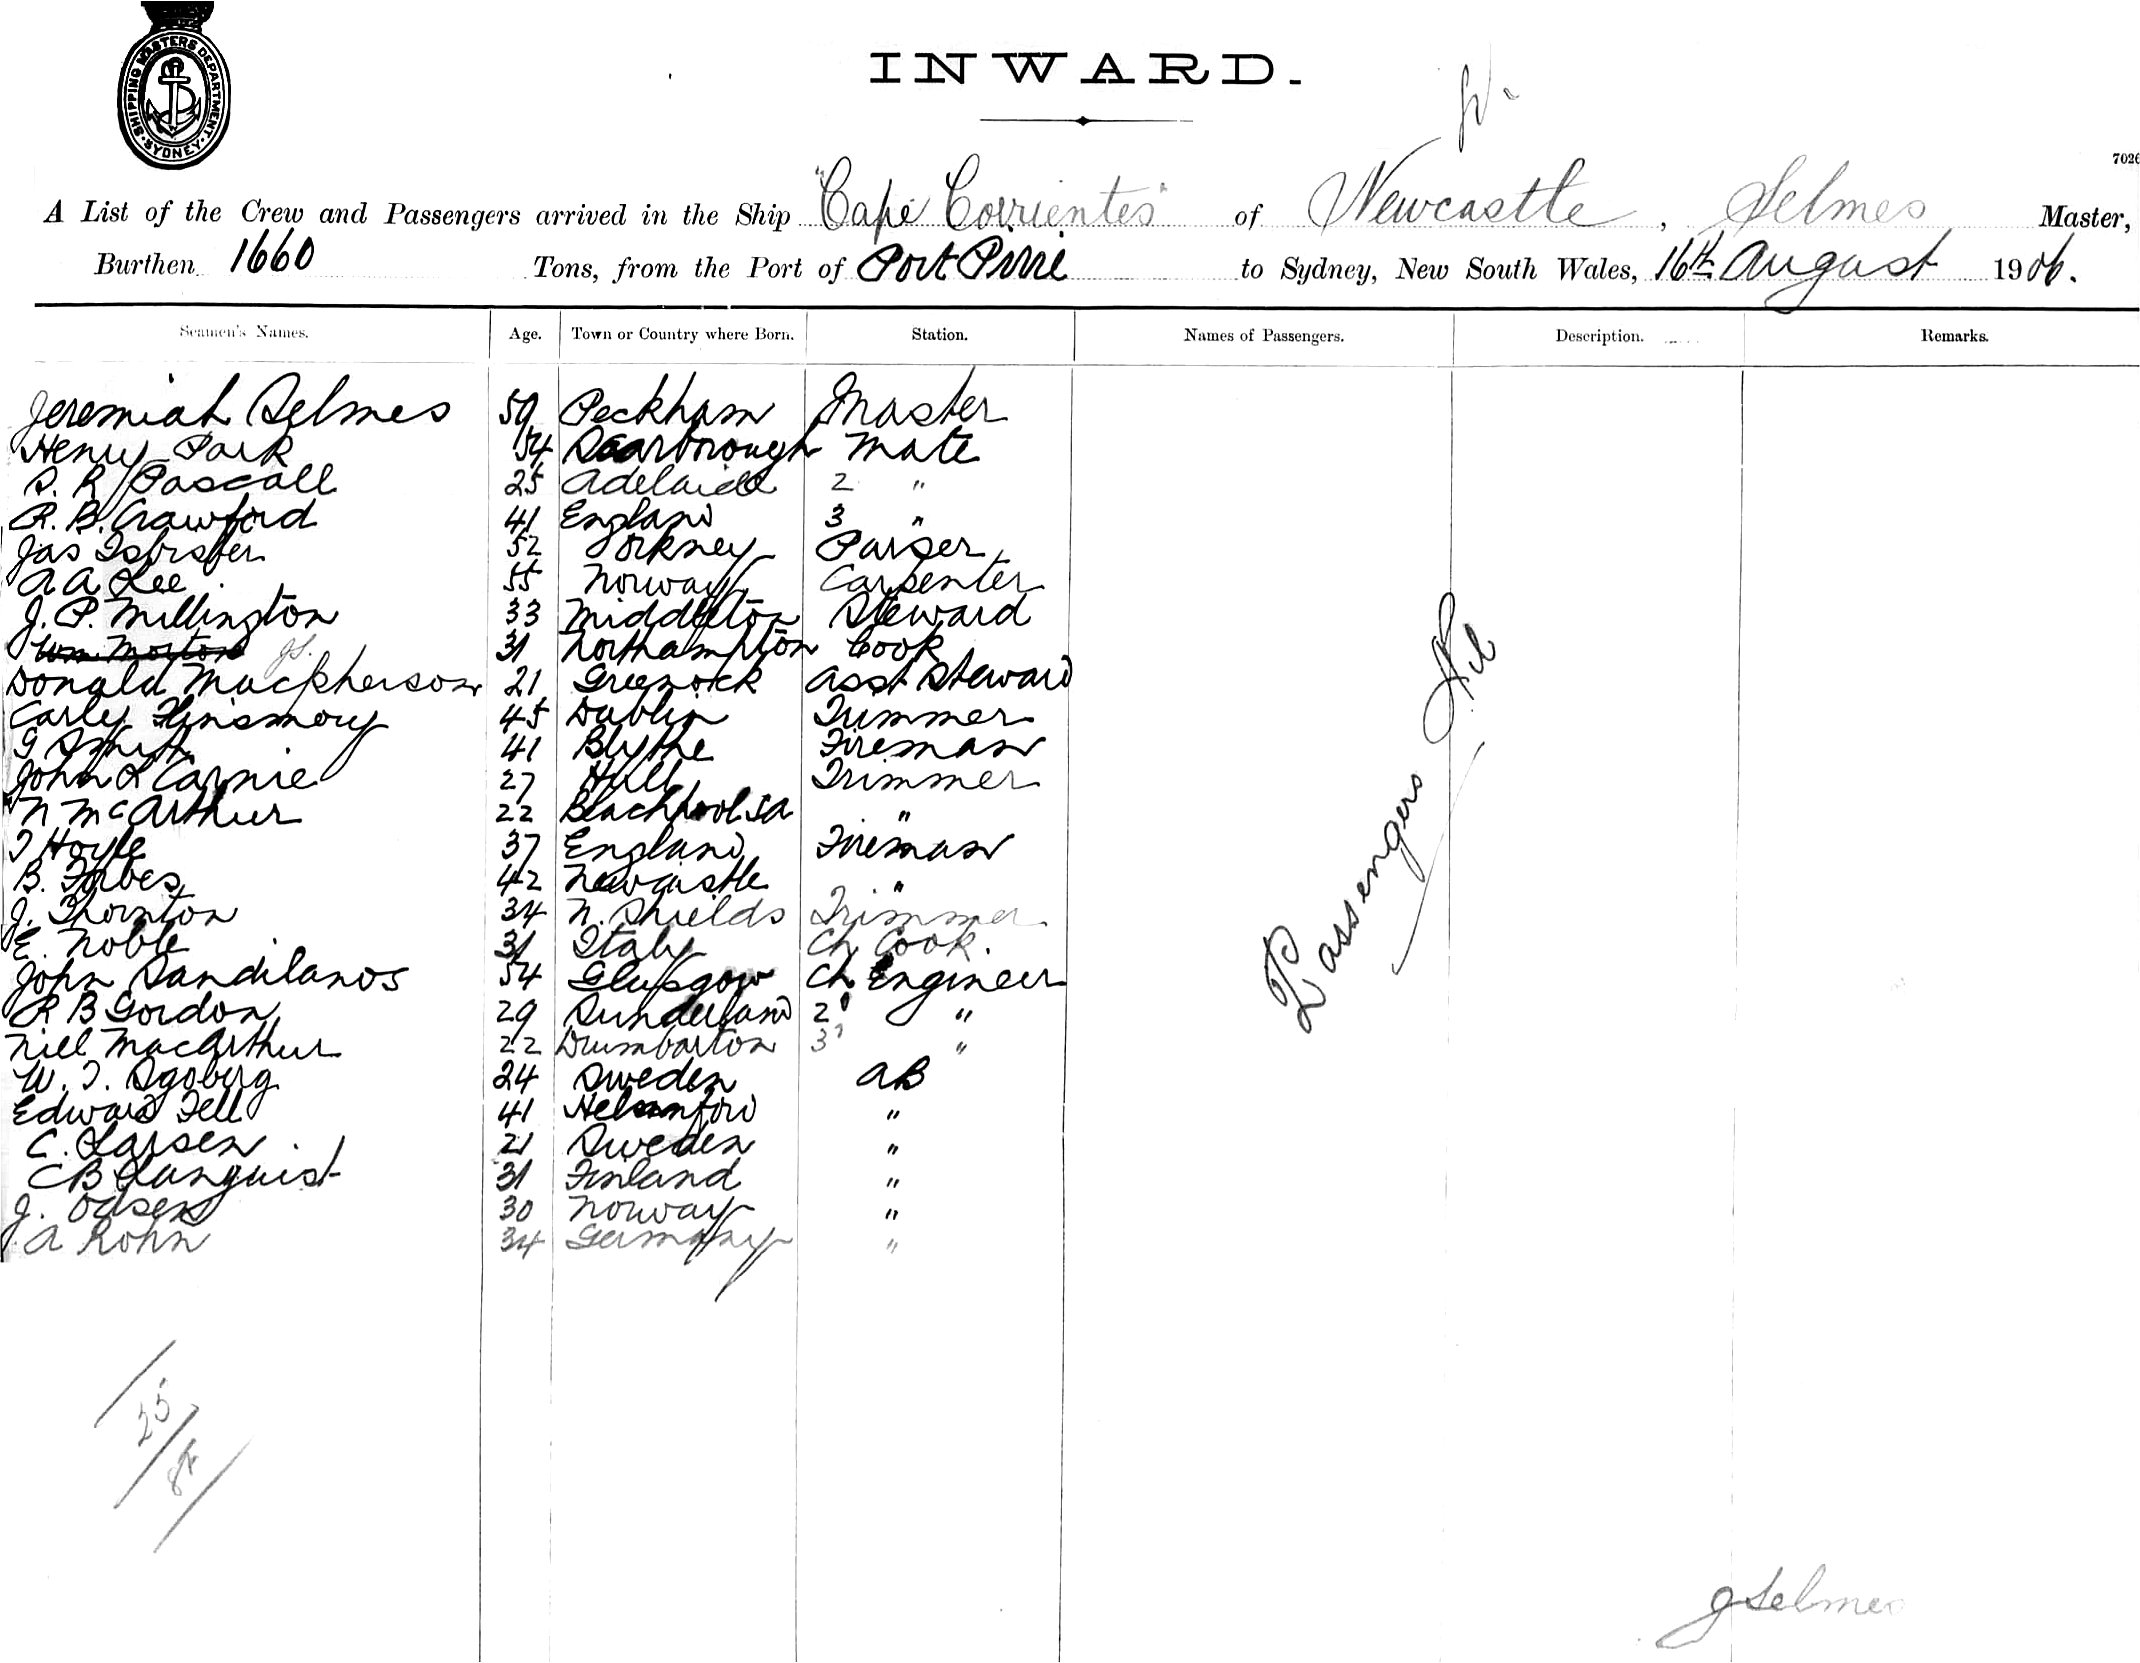 SHIPPING MASTERS DEPARTMENT
SYDNEY
INWARD.
7026
A List of the Crew and Passengers arrived in the Ship "Cape Corrientes" of Newcastle, Selmes Master,
Burthen 1660 Tons, from the Port of Port Pirie to Sydney, New South Wales, 16th August 1906.
Seamen's Names. Age. Town or Country where Born. Station. Names of Passengers. Description. Remarks.
Jeremiah Selmes 59 Peckham Master
Henry Park 54 Scarborough Mate
S. R. Pascall 25 Adelaide 2 "
R. B. Crawford 41 England 3 "
Jas Isbister 52 Orkney Purser
A A Lee 55 Norway Carpenter
J. P. Millington 33 Middleton Steward
Wm Morton JS. 31 Northampton Cook
Donald Macpherson 21 Greenock Asst Steward
Carley 45 Dublin Trimmer
G Smith 41 Blythe Fireman
John L Carnie 27 Hull Trimmer
N McArthur 22 Blackpool "
T Hoyle 37 England Fireman
B. Forbes 42 Newcastle "
J. Thornton 34 N. Shields Trimmer
E. Noble 31 Italy Ch Cook.
John Sandilands 54 Glasgow Ch Engineer
R B Gordon 29 Sunderland 2 "
Niel MacArthur 22 Dumbarton 3 "
W. T. 24 Sweden AB
Edward Fell 41 "
C. Larsen 21 Sweden "
C B Lunquist 31 Finland "
J. Olsen 30 Norway "
A Rohn 34 Germany "
Passengers Nil
J Selmes